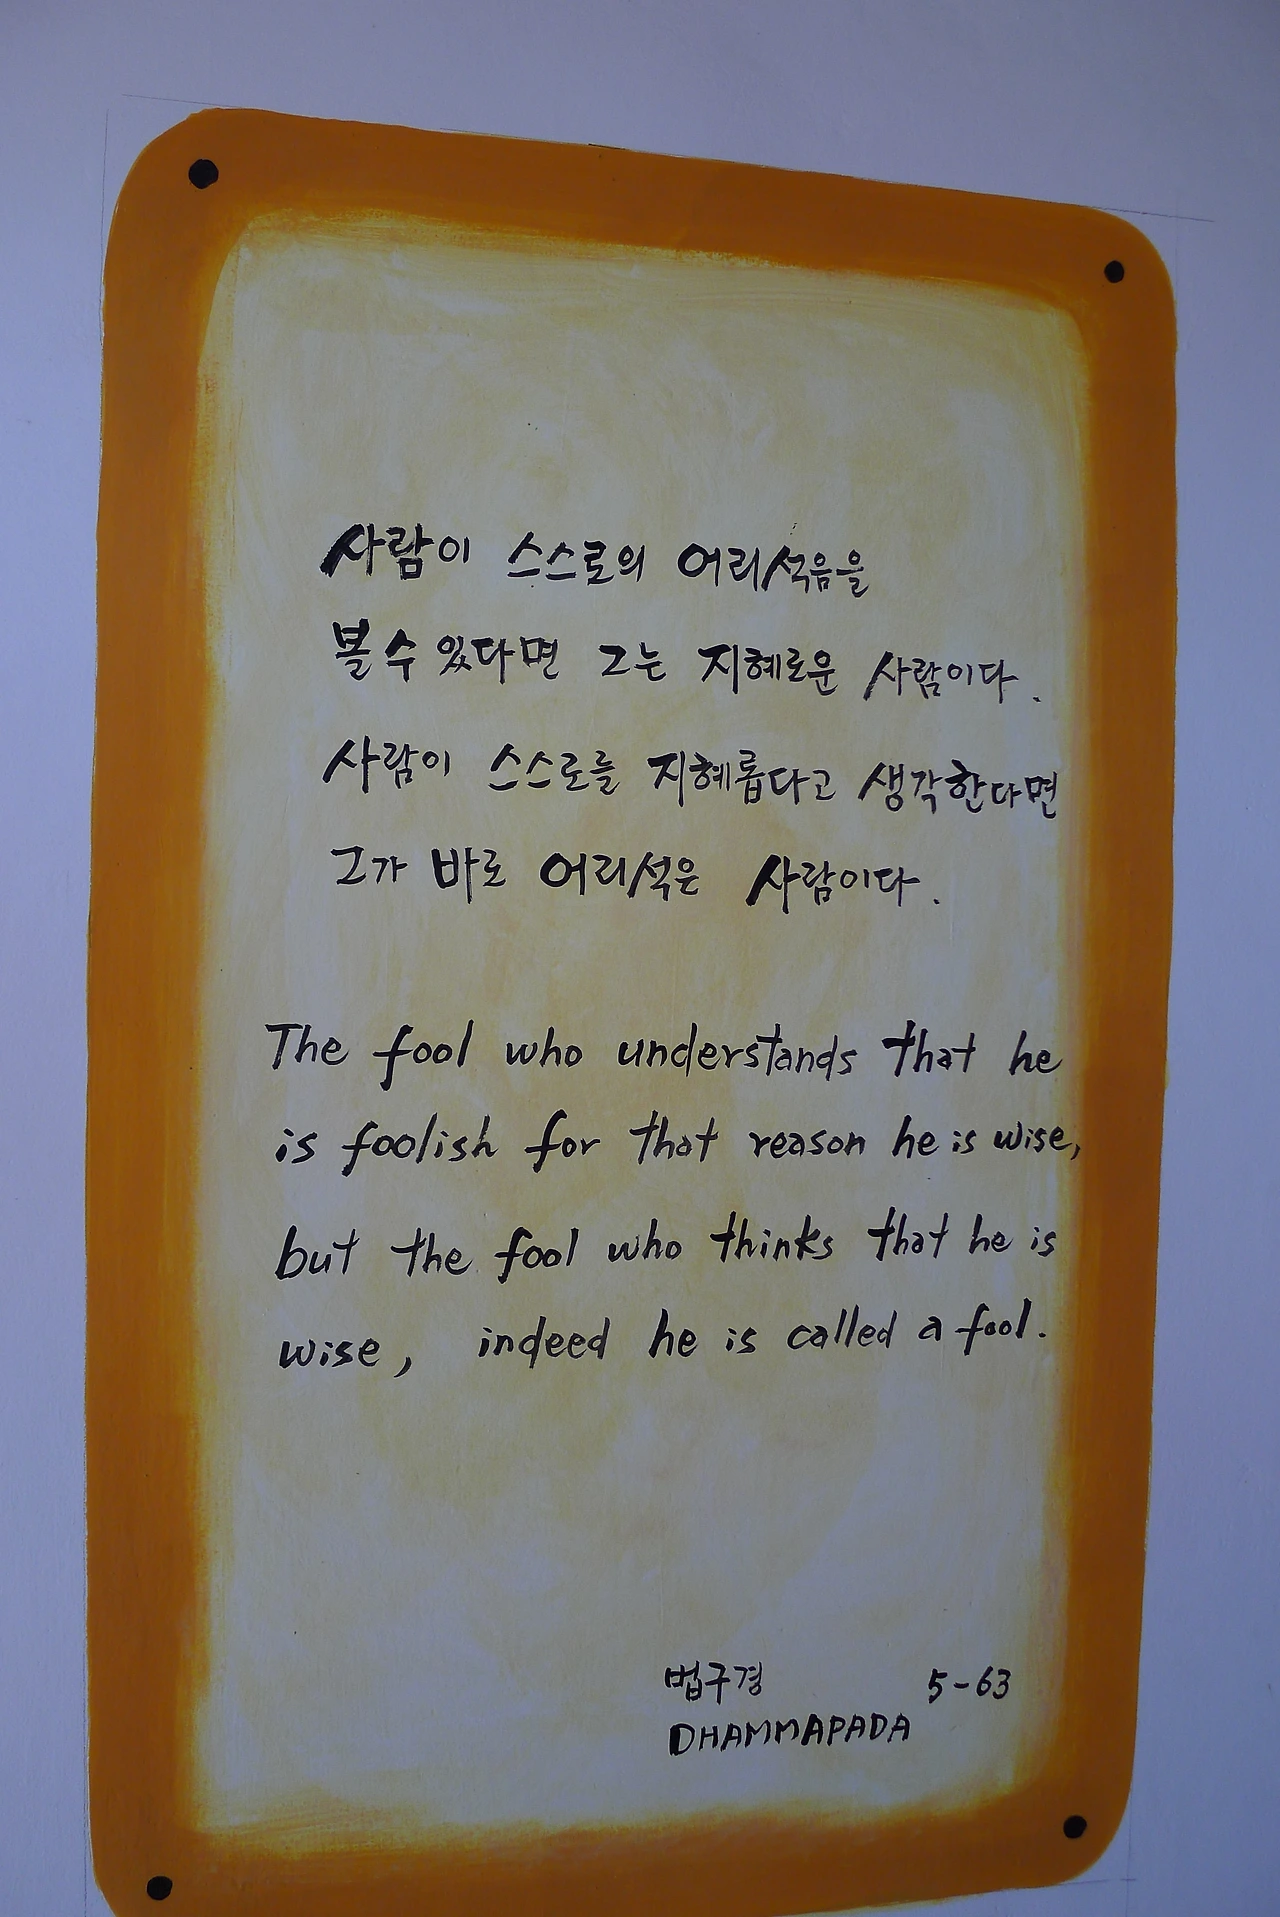 사람이 스스로의 어리석음을
볼 수 있다면 그는 지혜로운 사람이다.
사람이 스스로를 지혜롭다고 생각한다면
그가 바로 어리석은 사람이다.
The fool who understands that he
is foolish for that reason he is wise,
but the fool who thinks that he is
wise, indeed he is called a fool.
법구경 5-63
DHAMMAPADA